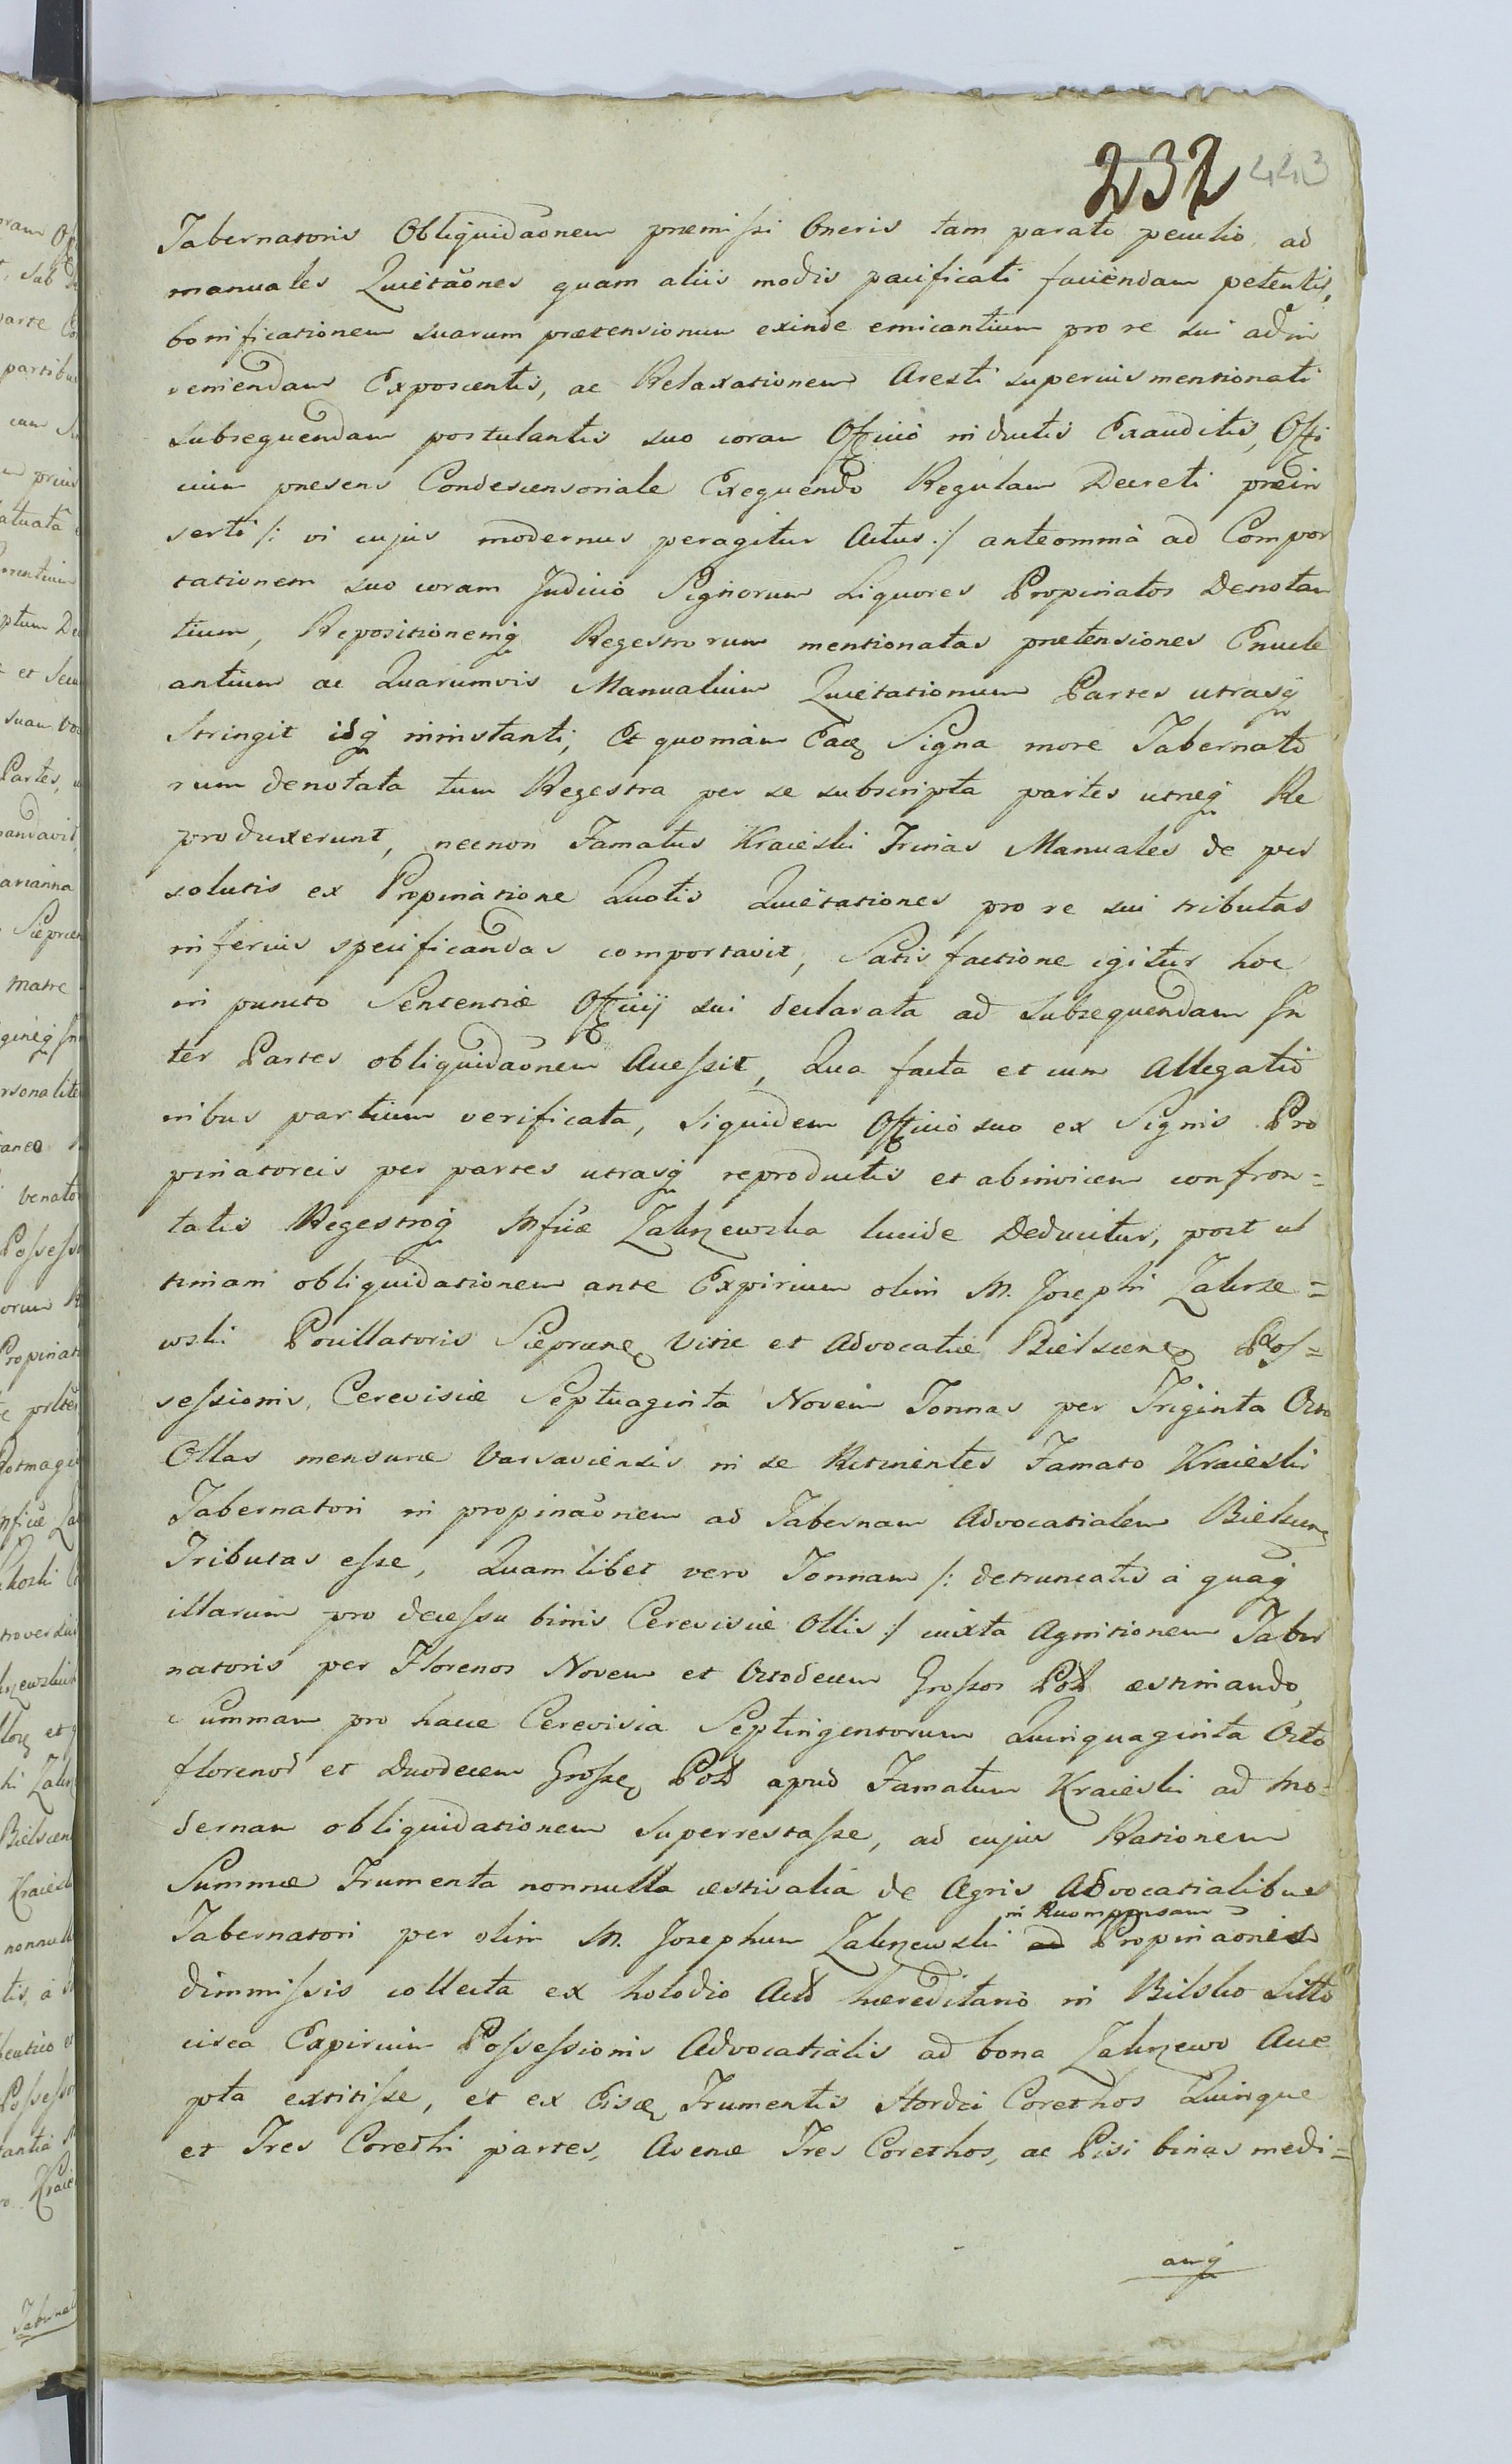 232 443
Tabernatoris Obligᴜidaõnem præmissi Oneris tam parato peculio, ad
manuales Quietaõnes quam aliis modis pacificati faciendam petentis,
bonificationem suarum prætensionum exinde emicantium pro re sui adin
veniendam Exposcentis, ac Relaxationem Aresti superius mentionati
subsequendam postulantis suo coram Officio inductis Exauditis, Offi
cium præsens Condescensoriale Exequendo Regulam Decreti præin
serti /: vi cujus modernus peragitur Actus :/ anteomnia ad Compor
tationem suo coram Judicio Signorum Liquores Propinatos Denotan
tium, Repositionemq Regestrorum mentionatas prætensiones Enucle
antium ac Quarumvis Manualium Quietationum Partes utrasq
stringit idq ininstanti, Et quoniam Eaꝫ Signa more Tabernato
rum denotata tum Regestra per se subscripta partes utræq Re
produxerunt, necnon Famatus Kraieski Trinas Manuales de per
solutis ex Propinatione Quotis Quietationes pro re sui tributas
inferius specificandas comportavit, Satisfactione igitur hoc
in puncto Sententiæ Officij sui declarata ad subsequendam In
ter Partes obliquidaõnem Accessit, Qua facta et cum Allegatio
nibus partium verificata, siquidem Officio suo ex Signis Pro
pinatoreis per partes utrasq reproductis et abinvicem confron=
tatis Regestroq Mficæ Zakrzewska lucide Deducitur, post ul
timam obliquidationem ante Expirium olim M. Josephi Zakrze=
wski Pocillatoris Sieprcenꝫ Vitæ et Advocatiæ Bielscenꝫ Pos=
sessionis, Cerevisiæ Septuaginta Novem Tonnas per Triginta Octo
Ollas mensuræ Varsaviensis in se Retinentes Famato Kraieski
Tabernatori in propinaõnem ad Tabernam Advocatialem Bielscenꝫ
Tributas esse, Quamlibet vero Tonnam /: detruncatis à quaq
illarum pro decessu binis Cerevisiæ Ollis :/ iuxta Agnitionem Taber
natoris per Florenos Novem et Octodecem Grossos Pol æstimando,
Summam pro hacce Cerevisia Septingentorum Quinquaginta Octo
florenos et Duodecem Grosseꝫ Pol apud Famatum Kraieski ad Mo=
dernam obliquidationem Superrestasse, ad cujus Rationem
Summæ Frumenta nonnulla æstivalia de Agris Advocatialibus
in Recompensam
Tabernatori per olim M. Josephum Zakrzewski ad Propinaonis
dimmissis collecta ex holodio Aut hæreditario in Bilsko Sitto
circa Expirium Possessionis Advocatialis ad bona Zakrzewo Acce
pta extitisse, et ex Eisdꝫ Frumentis Hordei Corethos Quinque
et Tres Corethi partes, Avenæ Tres Corethos, ac Pisi binas medi=
amq